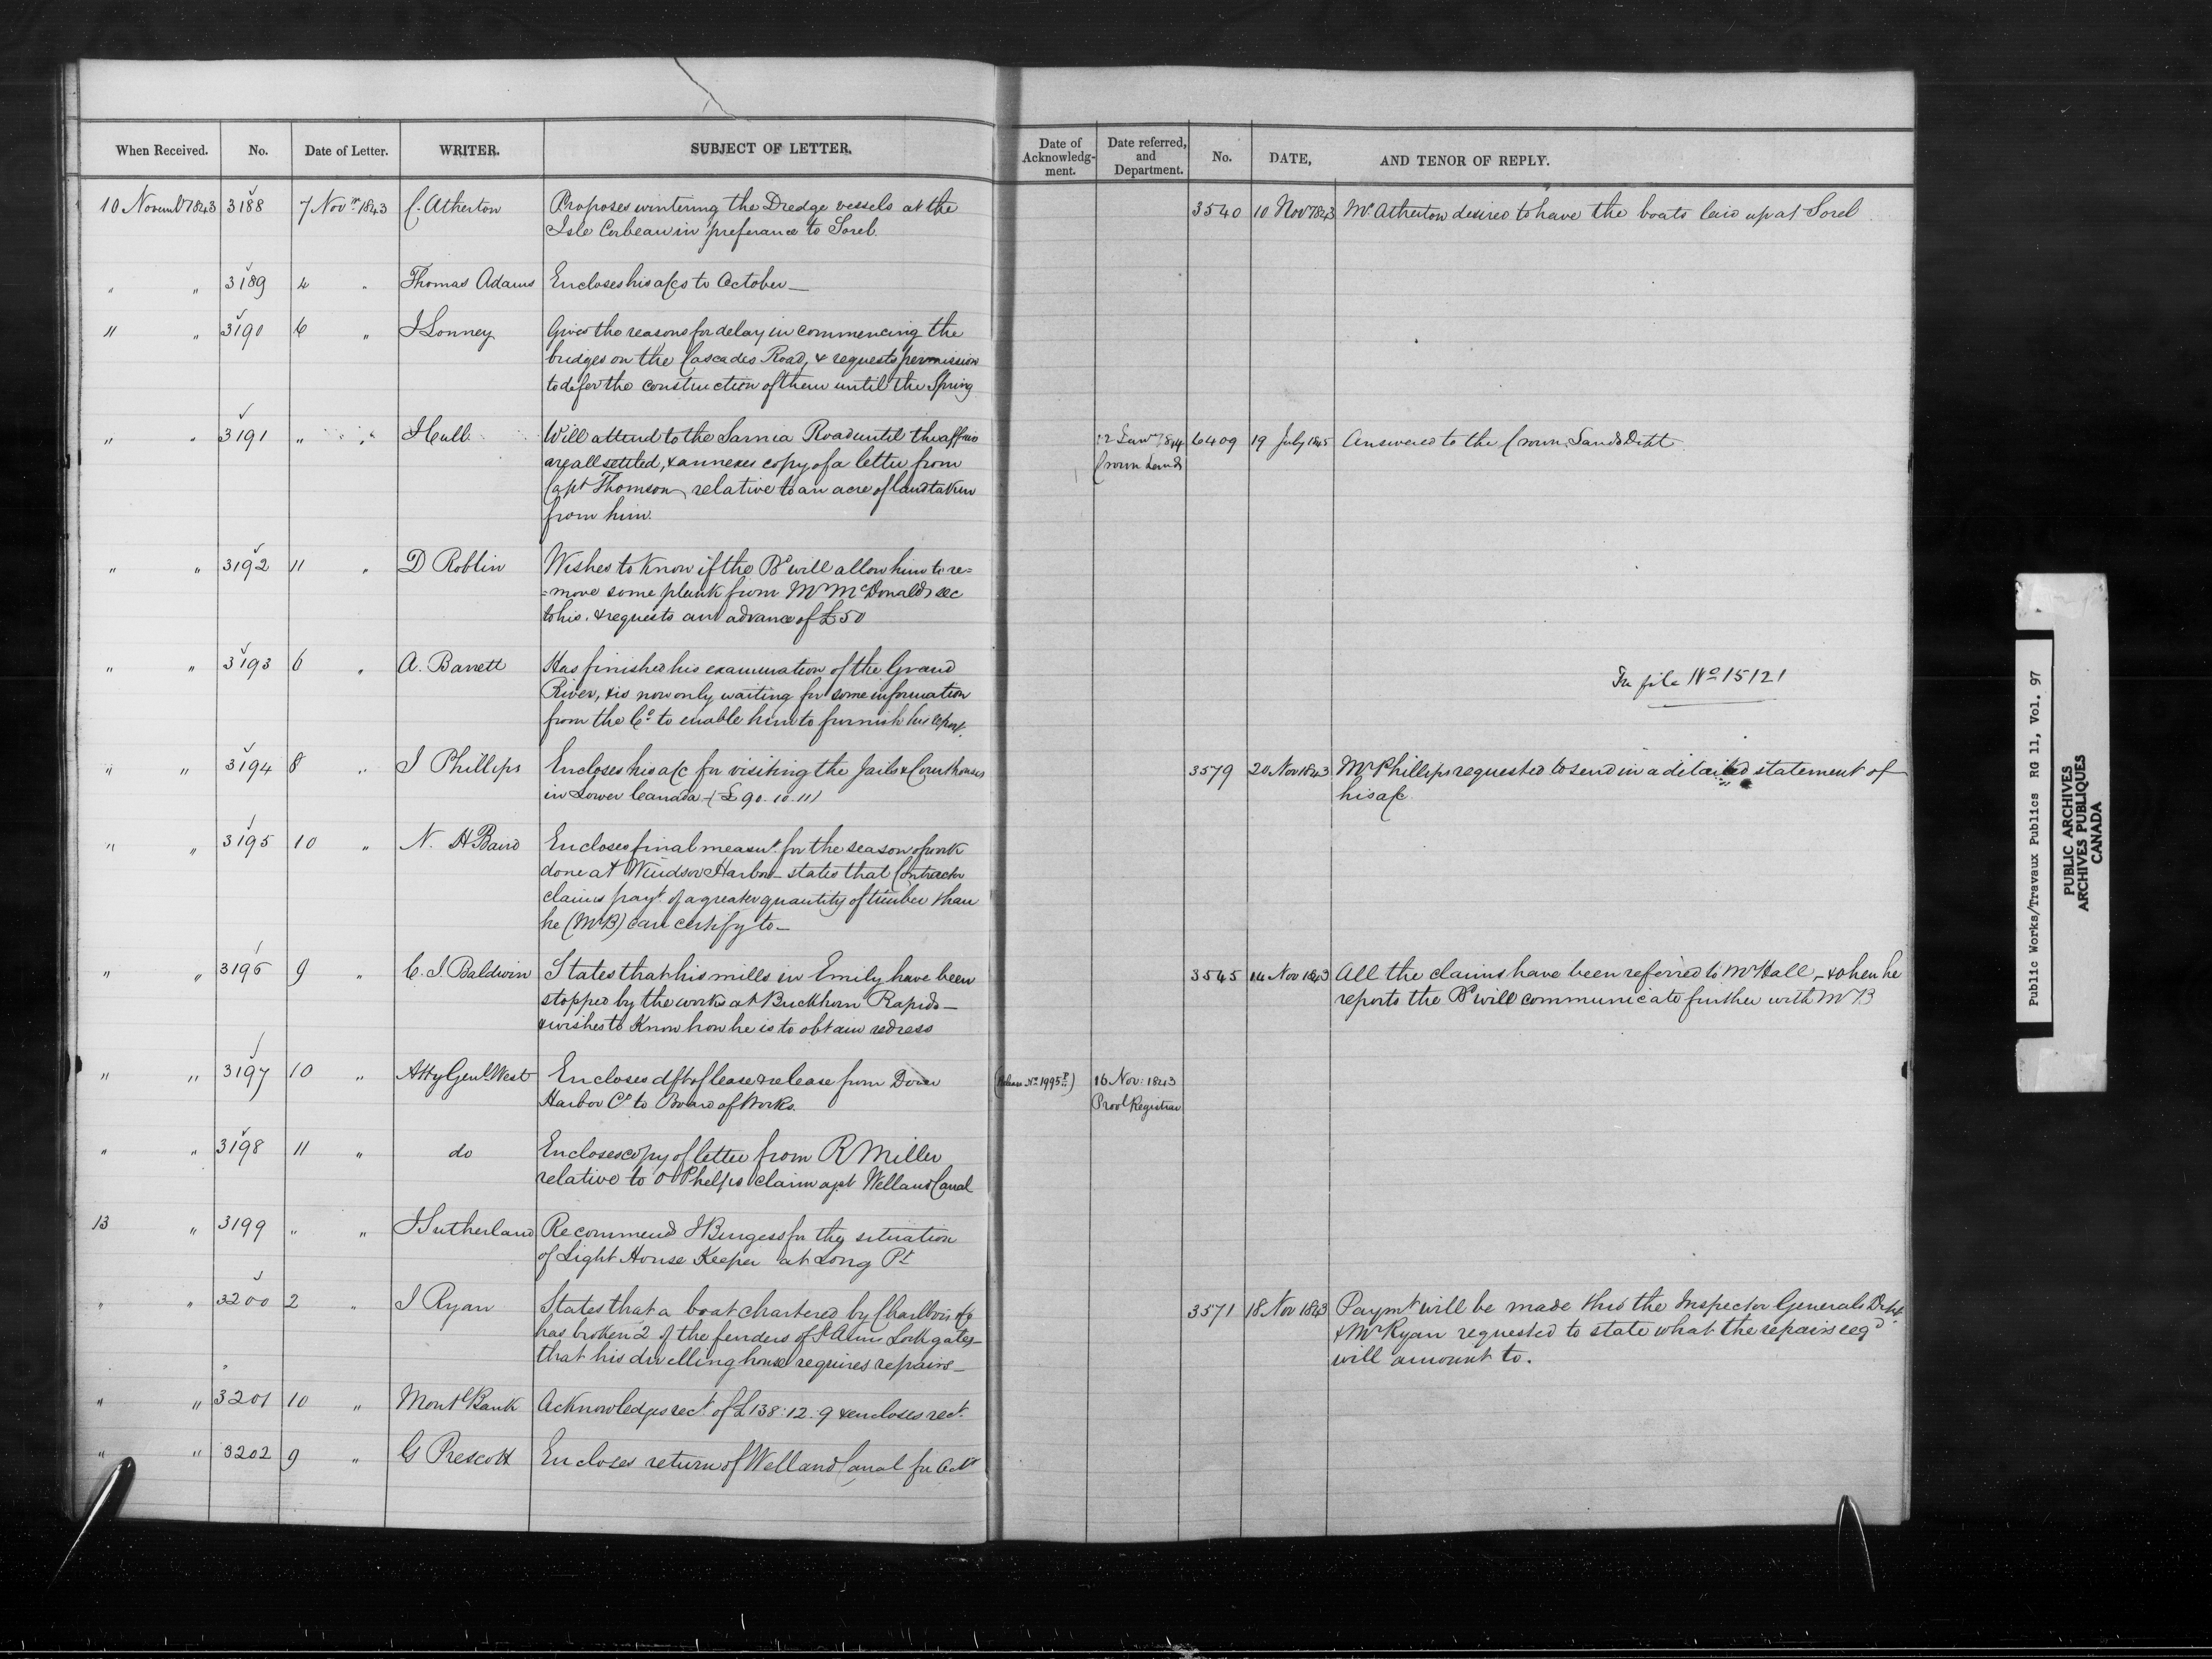 When Received. No. Date of Letter. WRITER. SUBJECT OF LETTER. Date of Acknowledg-ment. Date referred, and Department. No. DATE, AND TENOR OF REPLY.
10 Novemb 1843 3188 7 Novr 1843 C. Atherton Proposes wintering the Dredge vessels at the 3540 10 Nov 1843 Mr Atherton desired to have the boats laid up at Sorel
Isle Corbeau in preferance to Sorel.
" " 3189 4 " Thomas Adams Encloses his a/cs to October
" " 3190 6 " J Lonney Gives the reasons for delay in commencing the
bridges on the Cascades Road, & requests permission
to defer the construction of them until the Spring
" " 3191 " " J Cull Will attend to the Sarnia Road until the affairs 12 Jany 1844 6409 19 July 1845 Answered to the Crown Lands Dept
are all settled, & annexes copy of a letter from Crown Lands
Capt Thomson, relative to an acre of land taken
from him.
" " 3192 11 " D Roblin Wishes to know if the Bd will allow him to re=
=move some plank from Mr McDonalds sec
to his. & requests an advance of £50
" " 3193 6 " A. Barrett Has finished his examination of the Grand In file No 15121
River, & is now only waiting for some information
from the Co. to enable him to furnish his report.
" " 3194 8 " J Phillips Encloses his a/c for visiting the Jails & Court houses 3579 20 Nov 1843 Mr Phillips requested to send in a detailed statement of
in Lower Canada - (£90.10.11) his a/c
" " 3195 10 " N. H Baird Encloses final measurt for the season of work
done at Windsor Harbor - states that Contractor
claims payt of a greater quantity of timber than
he (Mr B) can certify to -
" " 3196 9 " C. J. Baldwin States that his mills in Emily have been 3545 14 Nov 1843 All the claims have been referred to Mr Hall, - & when he
stopped by the works at Buckhorn Rapids - reports the Bd will communicate further with Mr B
& wishes to know how he is to obtain redress
" " 3197 10 " Atty Genl West Encloses dft of lease & release from Dover (Release No 1995) 16 Nov: 1843
Harbor Co to Board of Works. Provl Registrar
" " 3198 11 " do Encloses copy of letter from R Miller
relative to O Phelps claim agst Welland Canal
13 " 3199 " " J Sutherland Recommend J Burgess for the situation
of Light House Keeper at Long Pt
" " 3200 2 " J Ryan States that a boat chartered by Charlbois & Co 3571 18 Nov 1843 Paymt will be made thro the Inspector Generals Dept
has broken 2 of the fenders of St Anns Lock gates - & Mr Ryan requested to state what the repairs reqd
that his dwelling house requires repairs - will amount to.
" " 3201 10 " Montl Bank Acknowledges rect of £138:12.9 & encloses rect.
" " 3202 9 " G Prescott Encloses return of Welland Canal for Octr
Public Works/Travaux Publics RG 11, Vol. 97
PUBLIC ARCHIVES
ARCHIVES PUBLIQUES
CANADA